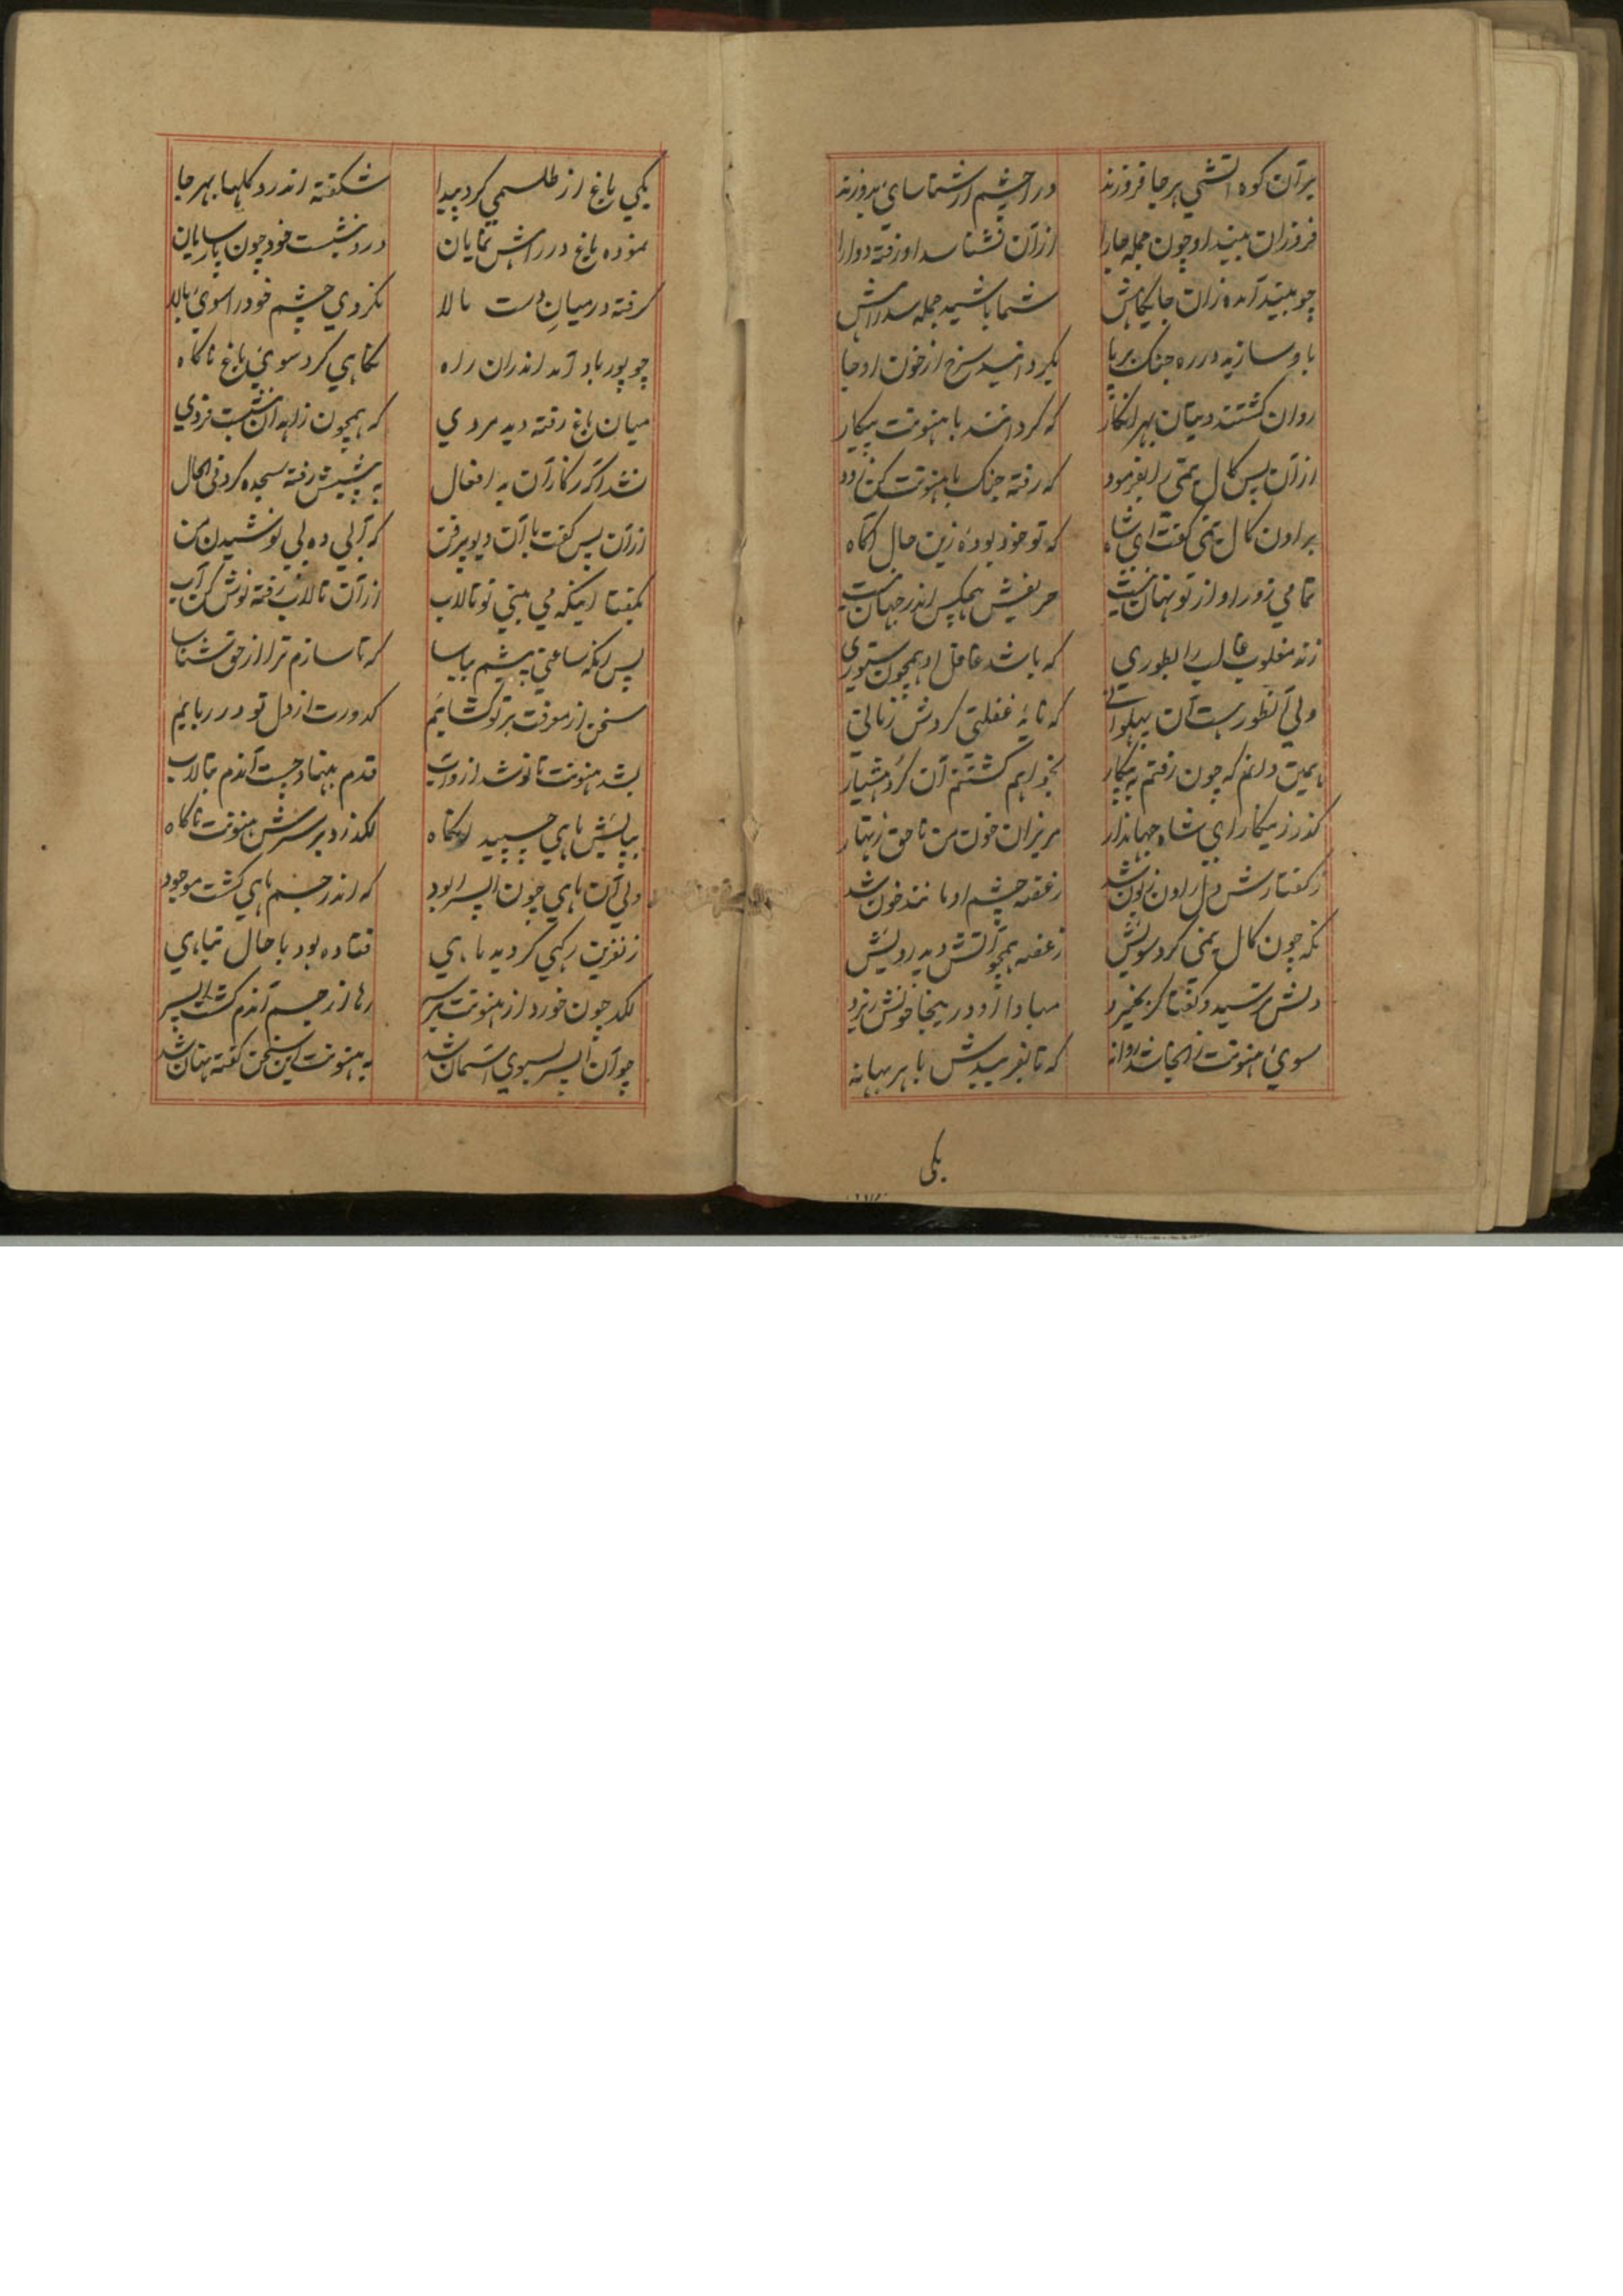 بر آن کوه آتشی هر جا فروزند ورا چشم از شناسای بدوزند
فروزان بیند او چون جمله جا را از آن نشناسد او رفته دوا را
چو بیند آمده زان جایگاهش شما باشید جمله سد راهش
باو سازید در ره جنک برپا بکردانید سرخ از خون او جا
روان کشتند دیتان بهر انکار که کردانند با هنونت پیکار
از آن پس کال یمنی را بفرمود که رفته جنک با هنونت کن زود
براون کال یمنی کفت ای شاه که تو خود بودهٔ زین حال آکاه
تمامی زور او از تو نهان نیست حریفش هیچکس اندر جهان نیست
زند مغلوب غالب را بطوری که باشد غافل او همچون ستوری
ولی آنطور هست آن پهلوانی که ناید غفلتی کردش زمانی
همین دانم که چون رفتم به پیکار نخواهم کشتنم آن کرد هشیار
کذر زینکار ای شاه جهاندار مریزان خون من ناحق زنهار
ز کفتارش دل راون زبون شد ز غصه چشم او مانند خون شد
نکه چون کال یمنی کرد سویش ز غصه همچو آتش دید رویش
دلش ترسید و کفتا کر بخیزد مبادا او در اینجا خونش ریزد
سوی هنونت ز انجا شد روانه که تا بفریبدش با هر بهانه
یکی
یکی باغ از طلسمی کرد پیدا شکفته اندرو کلها بهر جا
نموده باغ در راهش نمایان درو بنشست خود چون پارسایان
کرفته در میان دست مالا نکردی چشم خود را سوی بالا
چو پور باد آمد اندران راه نکاهی کرد سوی باغ ناکاه
میان باغ رفته دید مردی که همچون زاهدان بنشست فردی
نشد آکه ز کار آن بد افعال به پیشش رفته سجده کرد فی الحال
از آن پس کفت با آن دیو پرفن که آبی ده پی نوشیدن من
بکفتا اینکه می بینی تو تالاب از آن تالاب رفته نوش کن آب
پس آنکه ساعتی پیشم بیاسا که تا سازم ترا از حق شناسا
سخن از معرفت بر تو کشایم کدورت از دل تو در ربایم
بشد هنونت تا نوشد از و آب قدم بنهاد و جست آندم بتالاب
بپایش ماهی چسپید آنکاه لکد زد بر سرش هنونت ناکاه
ولی آن ماهی چون اپسرا بود که اندر جسم ماهی کشت موجود
ز نفرین رکهی کردید ماهی فتاده بود با حال تباهی
لکد چون خورد از هنونت بر سر رها زان جسم آندم کشت اپسر
چو آن اپسر بسوی آسمان شد به هنونت این سخن کفته نهان شد